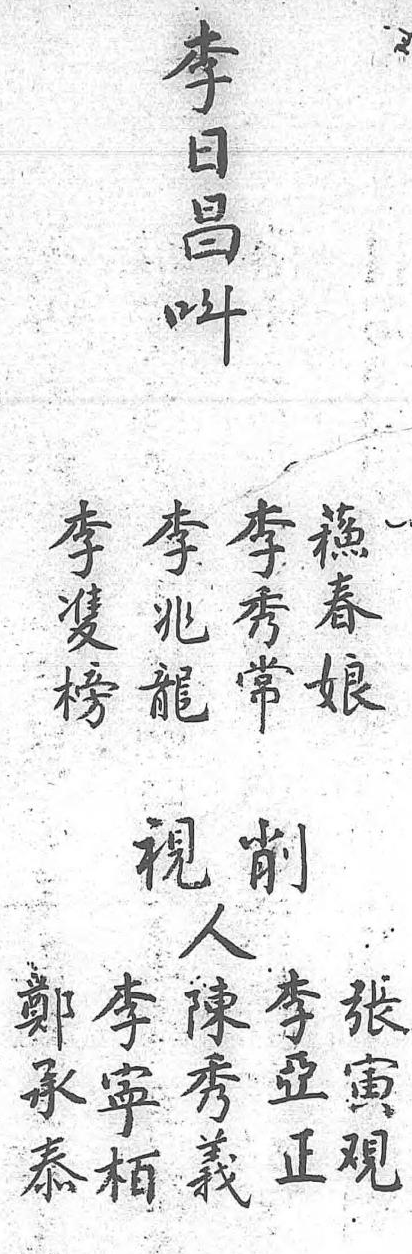 李日昌叫
蘓春娘
李秀常
李兆龍
李雙榜
削
視
人
張寅观
李亞正
陳秀義
李寕栢
鄭承泰